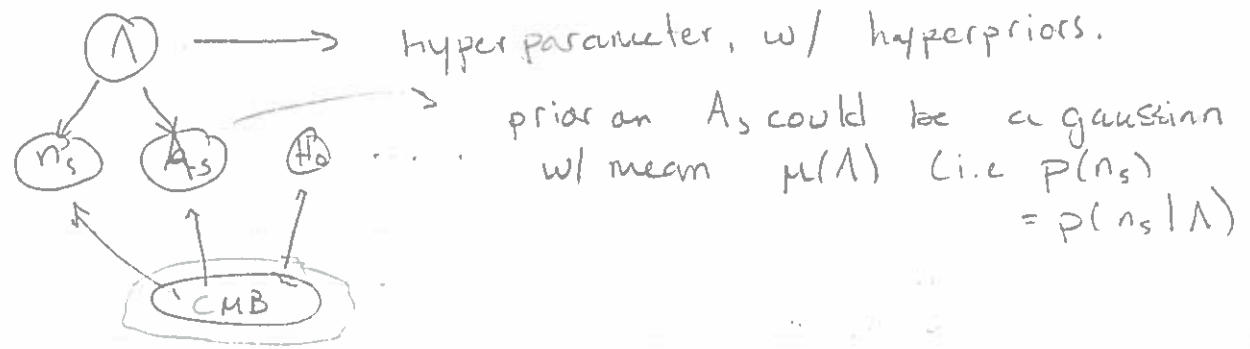 Λ → hyperparameter, w/ hyperpriors.
prior on A_s could be a gaussian
n_s A_s H_0 .... w/ mean μ(Λ) (i.e p(n_s)
= p(n_s|Λ)
CMB